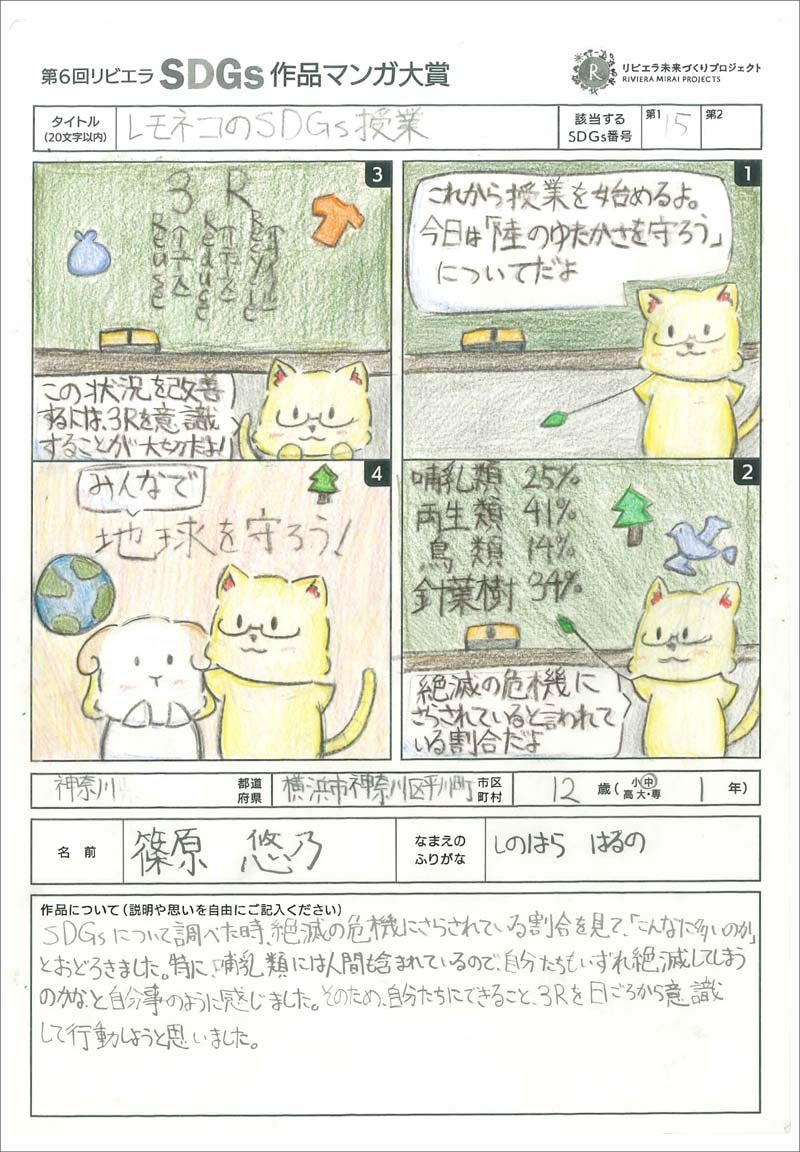 第6回リビエラ SDGs 作品マンガ大賞
リビエラ未来づくりプロジェクト
RIVIERA MIRAI PROJECTS
R
タイトル
(20文字以内)
レモネコのSDGs授業
該当する
SDGs番号
第1 15
第2
1
これから授業を始めるよ。
今日は「陸のゆたかさを守ろう」
についてだよ
2
哺乳類 25%
両生類 41%
鳥類 14%
針葉樹 34%
絶滅の危機に
さらされていると言われて
いる割合だよ
3
3 R
Recycle
Reduce
Reuse
この状況を改善
するには、3Rを意識
することが大切だよ!
4
みんなで
地球を守ろう!
神奈川 都道府県 横浜市神奈川区平川町 市区町村 12 歳( 小・中・高・大・専 1 年)
名 前 篠原 悠乃 なまえのふりがな しのはら はるの
作品について(説明や思いを自由にご記入ください)
SDGsについて調べた時、絶滅の危機にさらされている割合を見て、「こんなに多いのか」
とおどろきました。特に、哺乳類には人間も含まれているので、自分たちもいずれ絶滅してしまう
のかな、と自分事のように感じました。そのため、自分たちにできること、3Rを日ごろから意識
して行動しようと思いました。